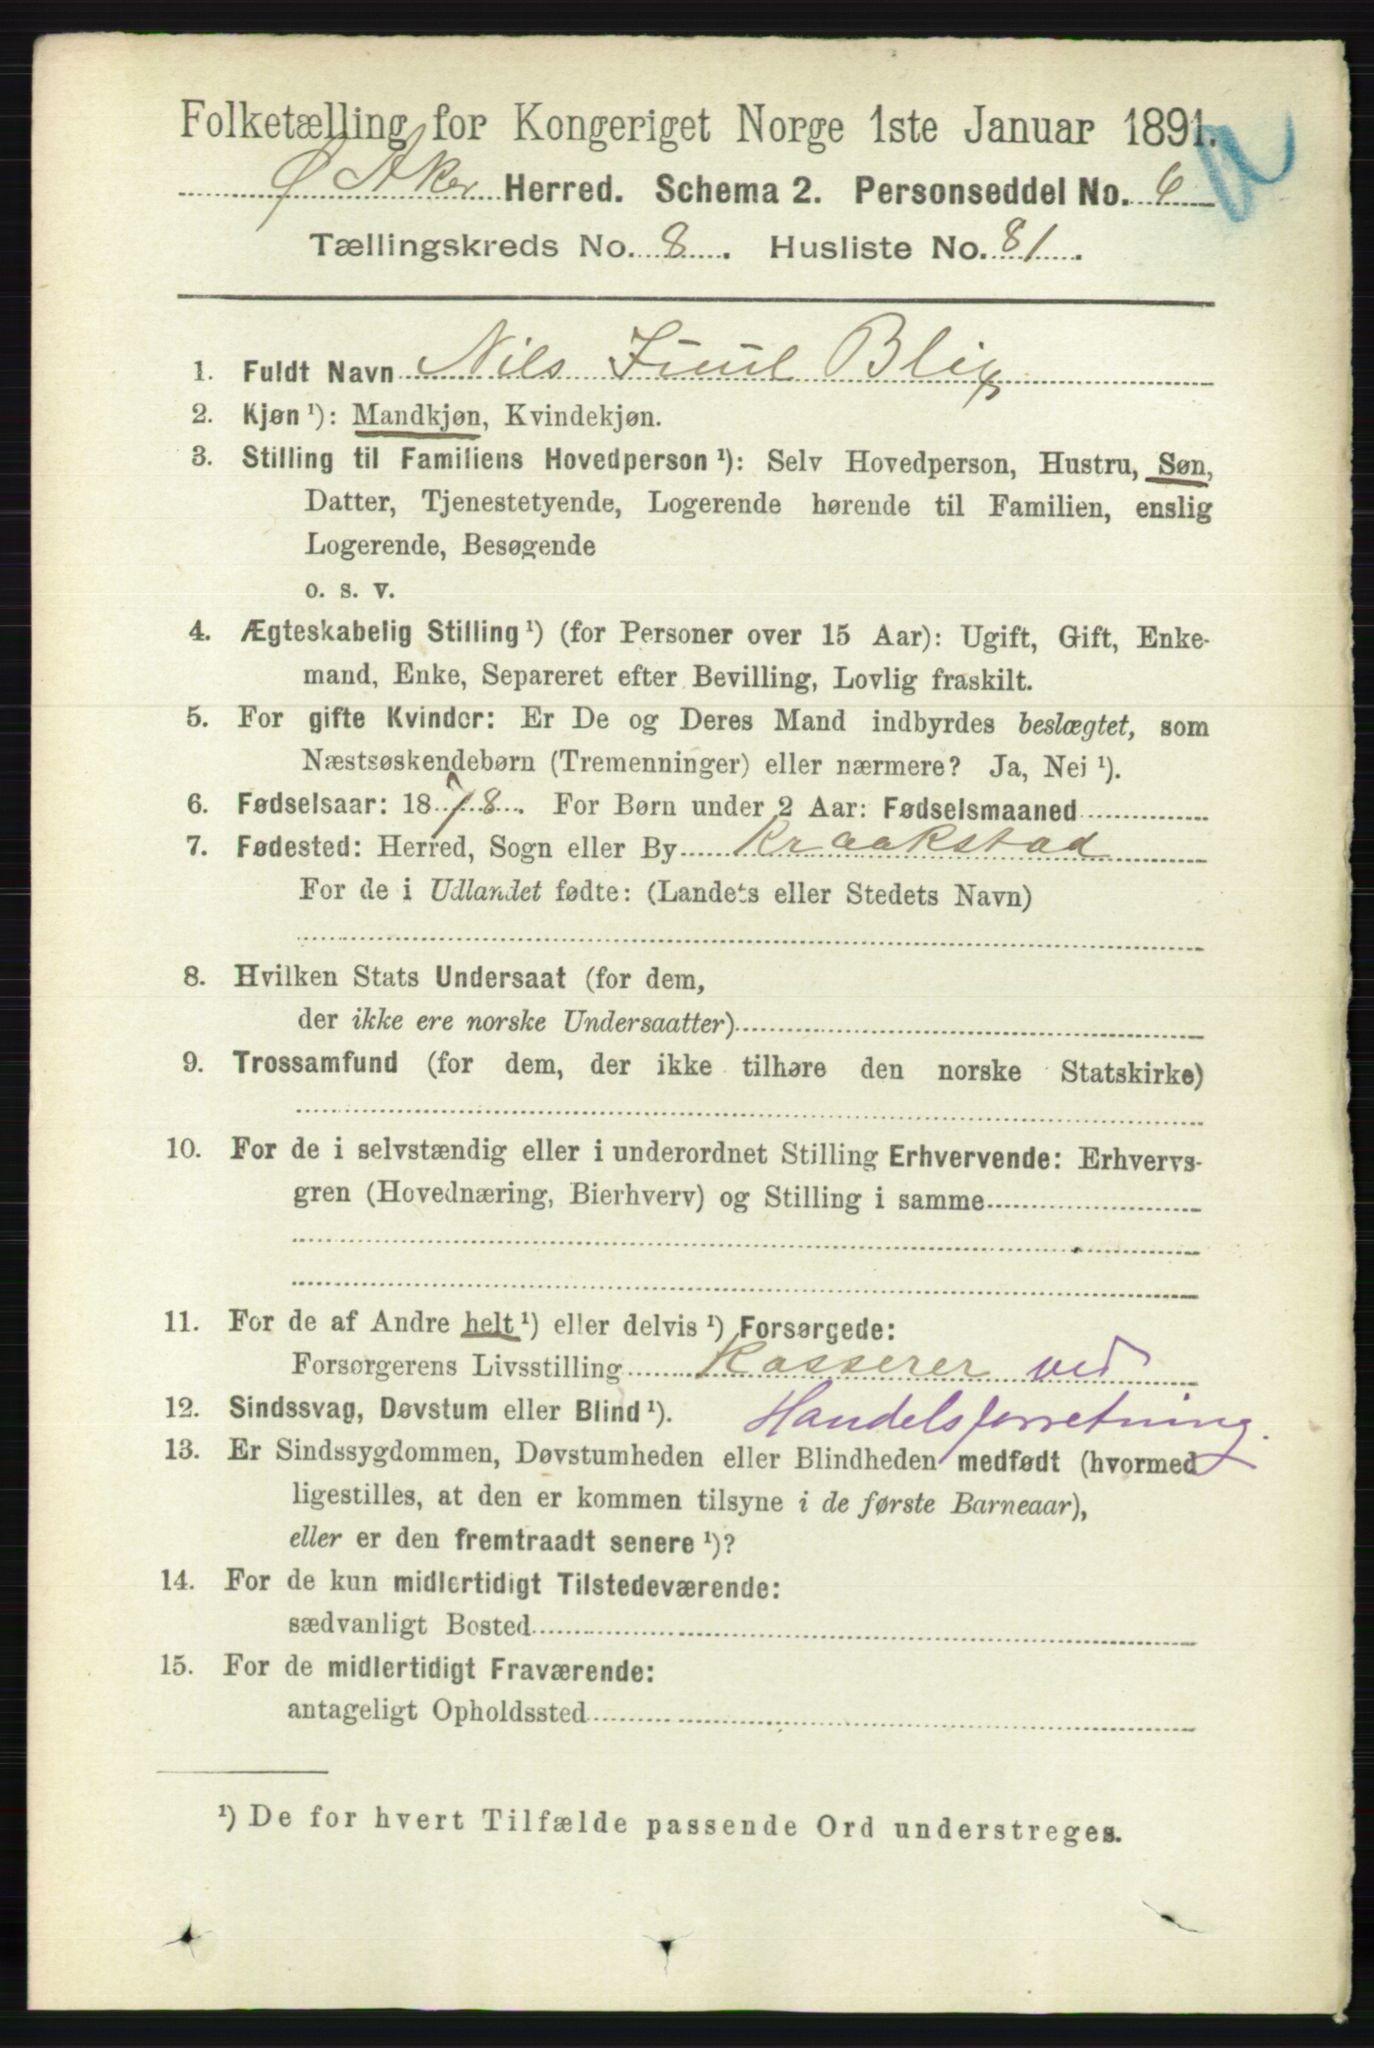 Folketælling for Kongeriget Norge 1ste Januar 1891.
Ø Aker Herred. Schema 2. Personseddel No. 6
Tællingskreds No. 8. Husliste No. 81.
1. Fuldt Navn Nils Juul Blix
2. Kjøn ¹): Mandkjøn, Kvindekjøn.
3. Stilling til Familiens Hovedperson ¹): Selv Hovedperson, Hustru, Søn,
Datter, Tjenestetyende, Logerende hørende til Familien, enslig
Logerende, Besøgende
o. s. v.
4. Ægteskabelig Stilling ¹) (for Personer over 15 Aar): Ugift, Gift, Enke-
mand, Enke, Separeret efter Bevilling, Lovlig fraskilt.
5. For gifte Kvinder: Er De og Deres Mand indbyrdes beslægtet, som
Næstsøskendebørn (Tremenninger) eller nærmere? Ja, Nei ¹).
6. Fødselsaar: 1878. For Børn under 2 Aar: Fødselsmaaned
7. Fødested: Herred, Sogn eller By Kraakstad
For de i Udlandet fødte: (Landets eller Stedets Navn)
8. Hvilken Stats Undersaat (for dem,
der ikke ere norske Undersaatter)
9. Trossamfund (for dem, der ikke tilhøre den norske Statskirke)
10. For de i selvstændig eller i underordnet Stilling Erhvervende: Erhvervs-
gren (Hovednæring, Bierhverv) og Stilling i samme
11. For de af Andre helt ¹) eller delvis ¹) Forsørgede:
Forsørgerens Livsstilling Kasserer ved
12. Sindssvag, Døvstum eller Blind ¹). Handelsforretning.
13. Er Sindssygdommen, Døvstumheden eller Blindheden medfødt (hvormed
ligestilles, at den er kommen tilsyne i de første Barneaar),
eller er den fremtraadt senere ¹)?
14. For de kun midlertidigt Tilstedeværende:
sædvanligt Bosted
15. For de midlertidigt Fraværende:
antageligt Opholdssted
¹) De for hvert Tilfælde passende Ord understreges.